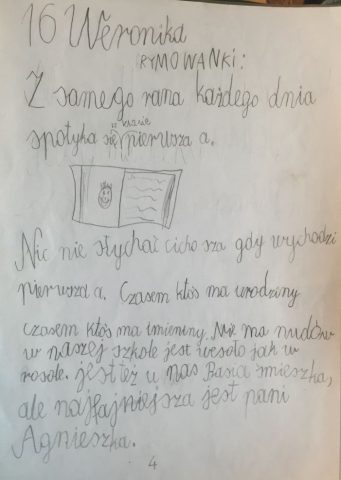 16 Wěronika
RYMOWANKI:
Z samego rana każdego dnia
w klasie
spotyka się pierwsza a.
Nic nie słychać cicho sza gdy wychodzi
pierwsza a. Czasem ktoś ma urodziny
czasem ktoś ma imieniny. Nie ma nudów
w naszej szkole jest wesoło jak w
rosole. jest też u nas Basia śmieszka,
ale najfajniejsza jest pani
Agnieszka.
4